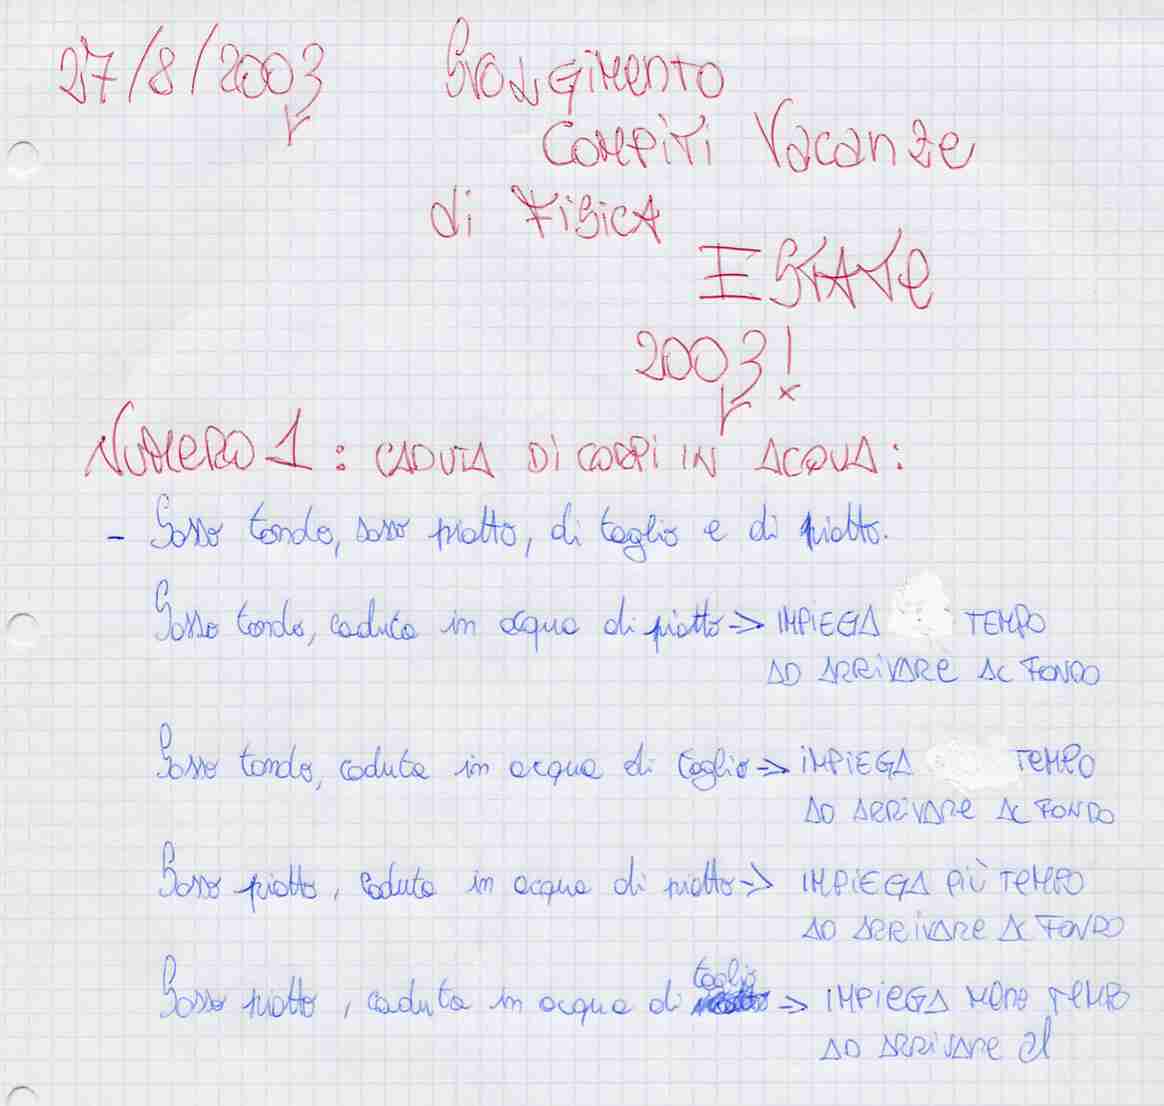 27/8/2003 SVOLGIMENTO
COMPITI Vacanze
di FISICA
ESTATE
2003!
NUMERO 1: CADUTA DI CORPI IN ACQUA:
- Sasso tondo, sasso piatto, di taglio e di piatto.
Sasso tondo, caduta in acqua di piatto => IMPIEGA TEMPO
AD ARRIVARE AL FONDO
Sasso tondo, caduta in acqua di taglio => IMPIEGA TEMPO
AD ARRIVARE AL FONDO
Sasso piatto, caduta in acqua di piatto => IMPIEGA PIÙ TEMPO
AD ARRIVARE AL FONDO
Sasso piatto, caduta in acqua di taglio => IMPIEGA MENO TEMPO
AD ARRIVARE al